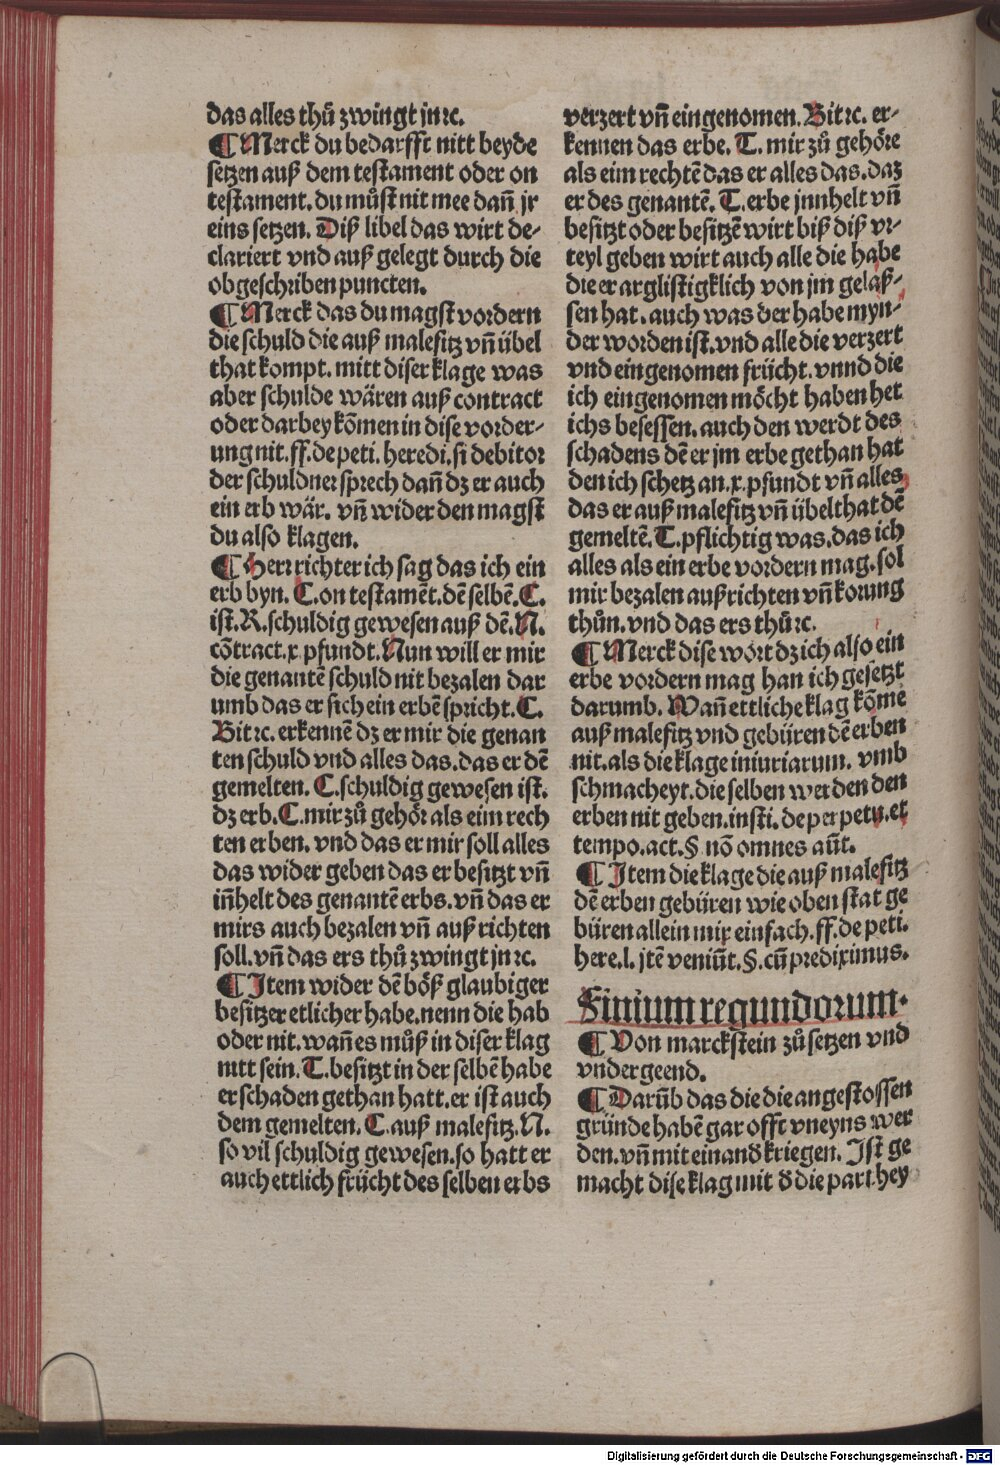 das alles thů zwingt jn ꝛc.
¶ Merck du bedarfft nitt beyde
setzen auß dem testament oder on
testament. du můst nit mee dañ jr
eins setzen. Diß libel das wirt de-
clariert vnd auß gelegt durch die
obgeschriben puncten.
¶ Merck das du magst vordern
die schuld die auß malefitz vñ übel
that kompt. mitt diser klage was
aber schulde wären auß contract
oder darbey kõmen in dise vorder-
ung nit. ff. de peti. heredi. si debitor
der schuldner sprech dañ dz er auch
ein erb wär. vñ wider den magst
du also klagen.
¶ Herr richter ich sag das ich ein
erb byn. C. on testamẽt. dẽ selbẽ. C.
ist. R. schuldig gewesen auß dẽ. N.
cõtract. x pfundt. Nun will er mir
die genantẽ schuld nit bezalen dar
umb das er sich ein erbẽ spricht. C.
Bit ꝛc. erkennẽ dz er mir die genan
ten schuld vnd alles das. das er dẽ
gemelten. C. schuldig gewesen ist.
dz erb. C. mir zů gehör als eim rech
ten erben. vnd das er mir soll alles
das wider geben das er besitzt vñ
iñhelt des genantẽ erbs. vñ das er
mirs auch bezalen vñ auß richten
soll. vñ das ers thů zwingt jn ꝛc.
¶ Item wider dẽ böß glaubiger
besitzer etlicher habe. nenn die hab
oder nit. wañ es můß in diser klag
nitt sein. T. besitzt in der selbẽ habe
er schaden gethan hatt. er ist auch
dem gemelten. C. auß malefitz. N.
so vil schuldig gewesen. so hatt er
auch ettlich frücht des selben erbs
verzert vñ eingenomen. Bit ꝛc. er-
kennen das erbe. T. mir zů gehöre
als eim rechtẽ das er alles das. daz
er des genantẽ. T. erbe jnnhelt vñ
besitzt oder besitzẽ wirt biß diß vr-
teyl geben wirt auch alle die habe
die er arglistigklich von jm gelaß-
sen hat. auch was der habe myn-
der worden ist. vnd alle die verzert
vnd eingenomen frücht. vnnd die
ich eingenomen möcht haben het
ichs besessen. auch den werdt des
schadens dẽ er jm erbe gethan hat
den ich schetz an. x. pfundt vñ alles
das er auß malefitz vñ übelthat dẽ
gemeltẽ. T. pflichtig was. das ich
alles als ein erbe vordern mag. sol
mir bezalen außrichten vñ korung
thůn. vnd das ers thů ꝛc.
¶ Merck dise wort dz ich also ein
erbe vordern mag han ich gesetzt
darumb. Wañ ettliche klag kõme
auß malefitz vnd gebüren dẽ erben
nit. als die klage iniuriarum. vmb
schmacheyt. die selben werden den
erben nit geben. insti. de perpetu. et
tempo. act. § nõ omnes aũt.
¶ Item die klage die auß malefitz
dẽ erben gebüren wie oben stat ge
büren allein mir einfach. ff. de peti.
here. l. jtẽ veniũt. §. cũ prediximus.
Finium regundorum.
¶ Von marckstein zů setzen vnd
vndergeend.
¶ Darũb das die die angestossen
gründe habẽ gar offt vneyns wer
den. vñ mit einanđ kriegen. Ist ge
macht dise klag mit đ die part. hey
Digitalisierung gefördert durch die Deutsche Forschungsgemeinschaft - DFG